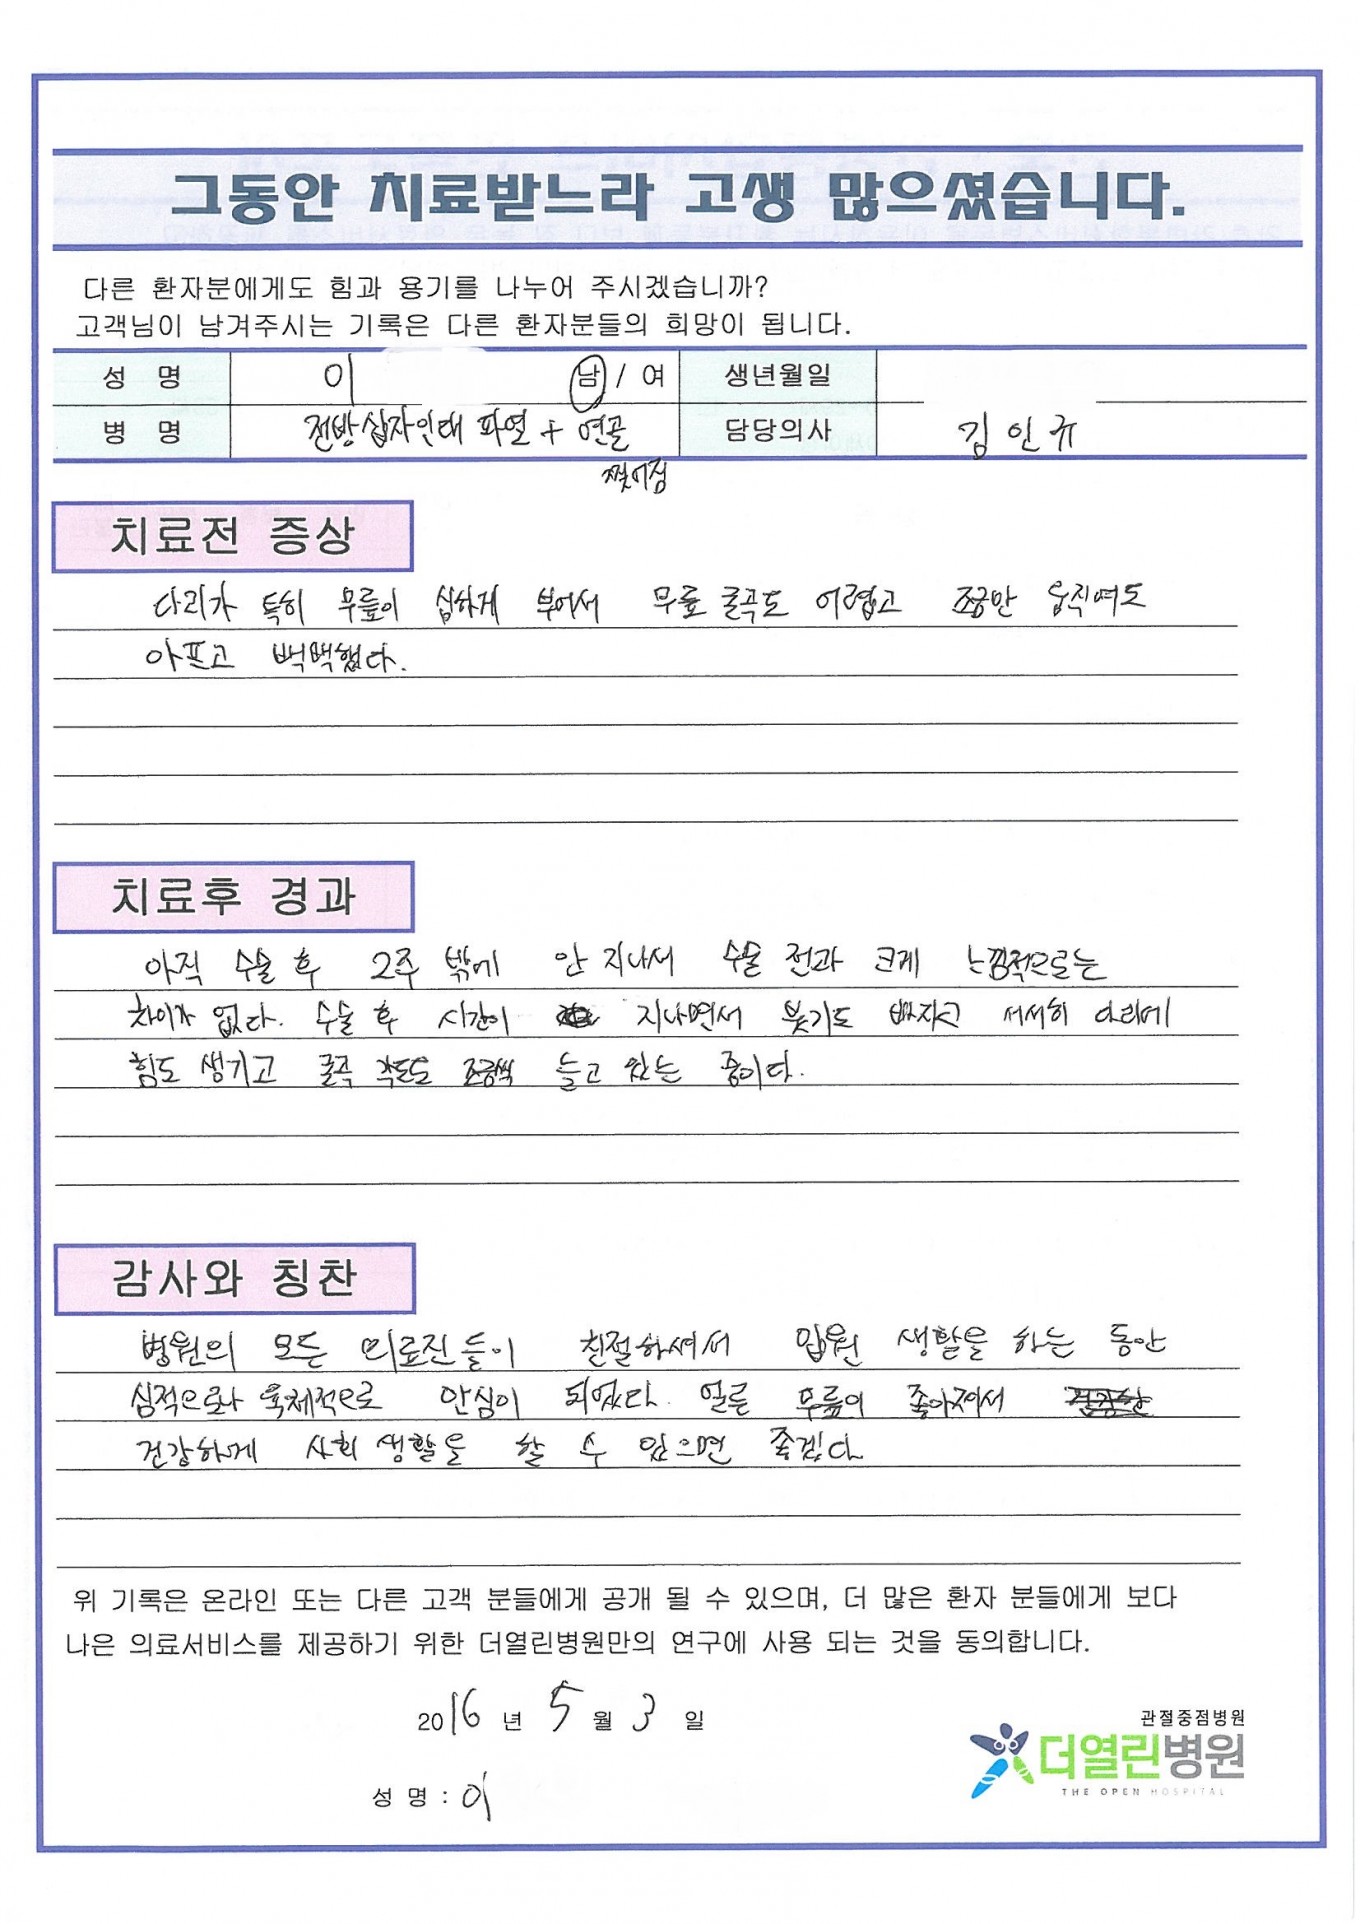 그동안 치료받느라 고생 많으셨습니다.
다른 환자분에게도 힘과 용기를 나누어 주시겠습니까?
고객님이 남겨주시는 기록은 다른 환자분들의 희망이 됩니다.
성 명 이 남 / 여 생년월일
병 명 전방십자인대 파열 + 연골 담당의사 김인규
찢어짐
치료전 증상
다리가 특히 무릎이 심하게 부어서 무릎 굴곡도 어렵고 조금만 움직여도
아프고 뻑뻑했다.
치료후 경과
아직 수술 후 2주 밖에 안 지나서 수술 전과 크게 느낌적으로는
차이가 없다. 수술 후 시간이 지나면서 붓기도 빠지고 서서히 다리에
힘도 생기고 굴곡 각도도 조금씩 늘고 있는 중이다.
감사와 칭찬
병원의 모든 의료진들이 친절하셔서 입원 생활을 하는 동안
심적으로나 육체적으로 안심이 되었다. 얼른 무릎이 좋아져서
건강하게 사회 생활을 할 수 있으면 좋겠다
위 기록은 온라인 또는 다른 고객 분들에게 공개 될 수 있으며, 더 많은 환자 분들에게 보다
나은 의료서비스를 제공하기 위한 더열린병원만의 연구에 사용 되는 것을 동의합니다.
2016 년 5 월 3 일
관절중점병원
더열린병원
THE OPEN HOSPITAL
성 명 : 이